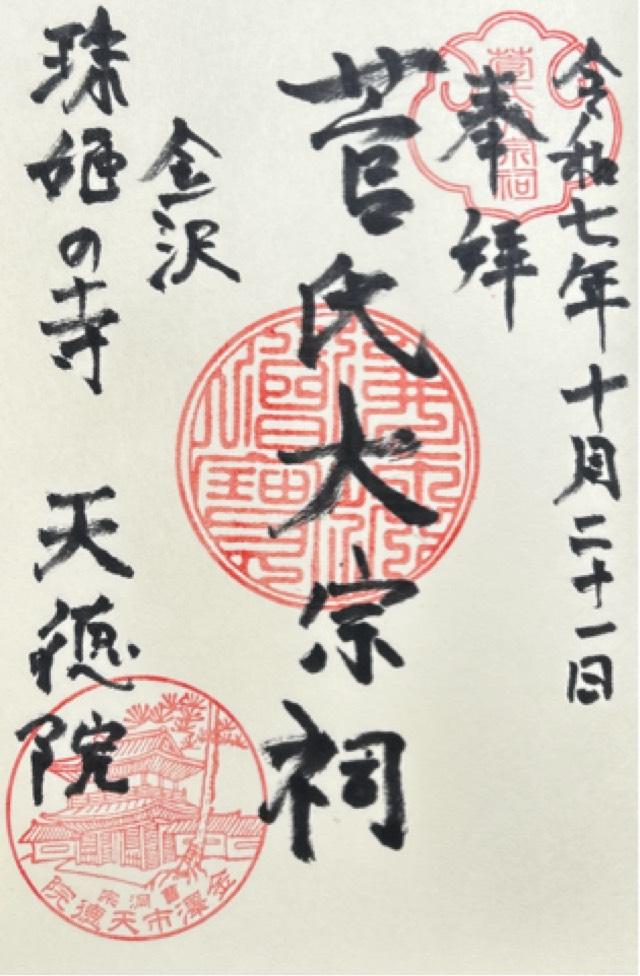 令和七年十月二十一日
奉拝
菅氏大宗祠
金沢
珠姫の寺 天徳院
曹洞宗
金澤市天徳院